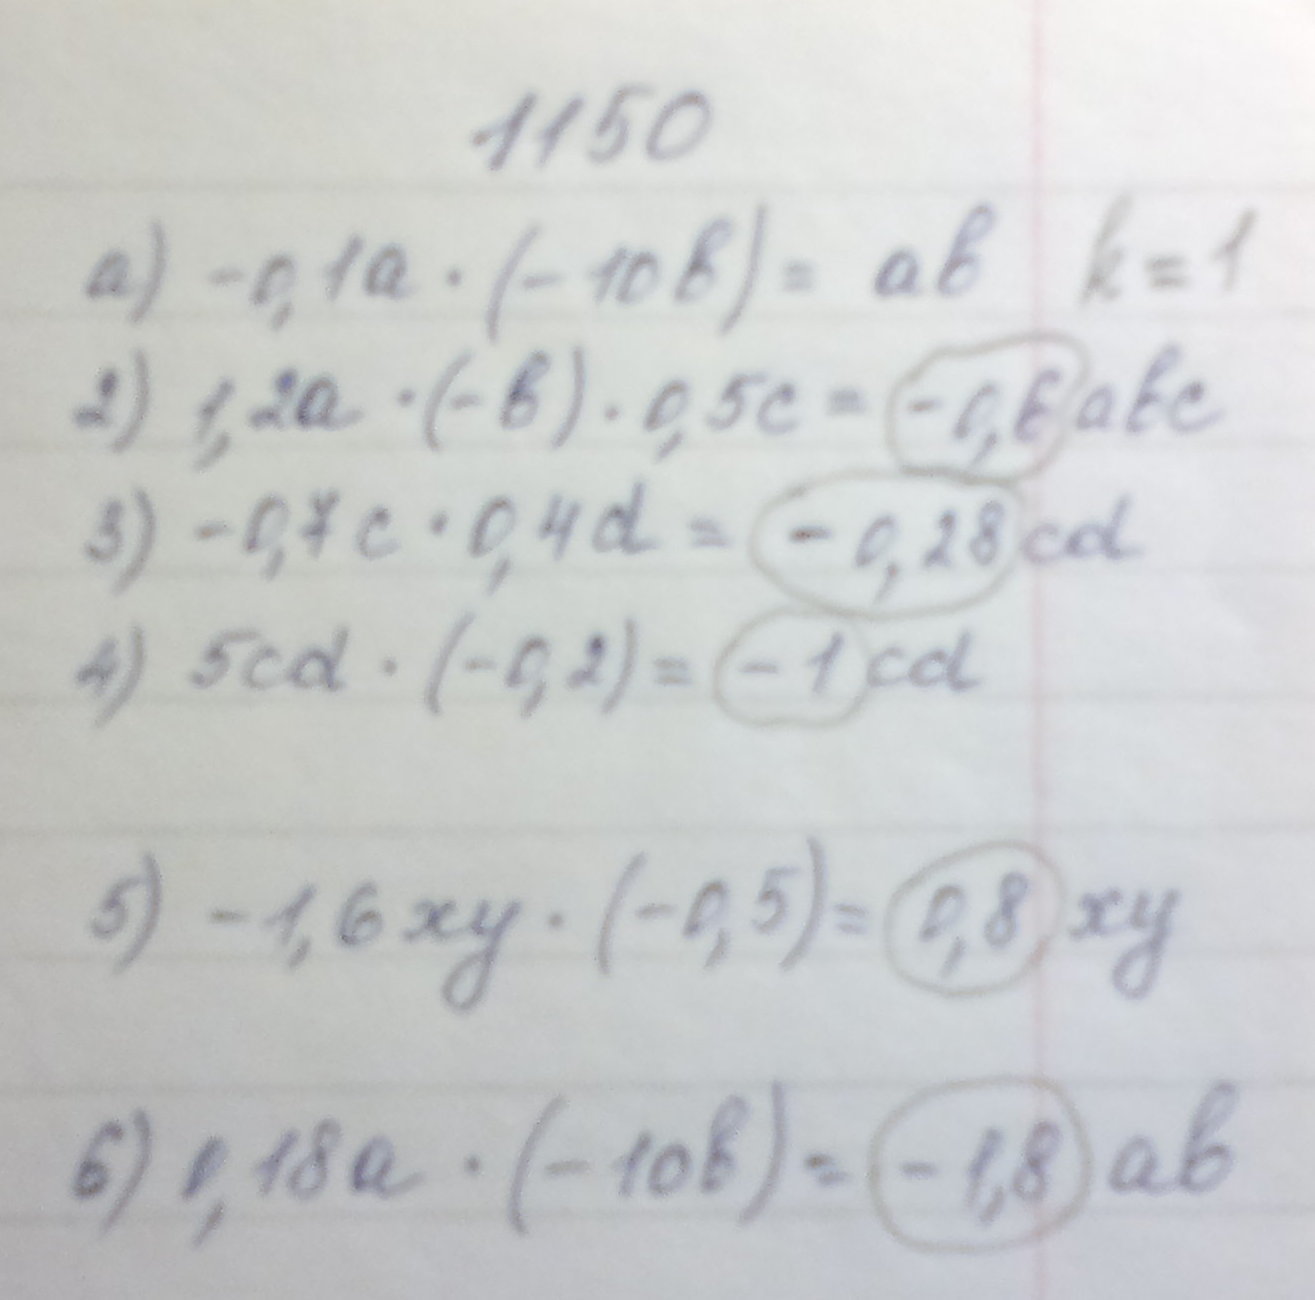 1150
а) -0,1a · (-10b) = ab k = 1
2) 1,2a · (-b) · 0,5c = -0,6 abc
3) -0,7c · 0,4d = -0,28 cd
4) 5cd · (-0,2) = -1 cd
5) -1,6xy · (-0,5) = 0,8 xy
6) 0,18a · (-10b) = -1,8 ab